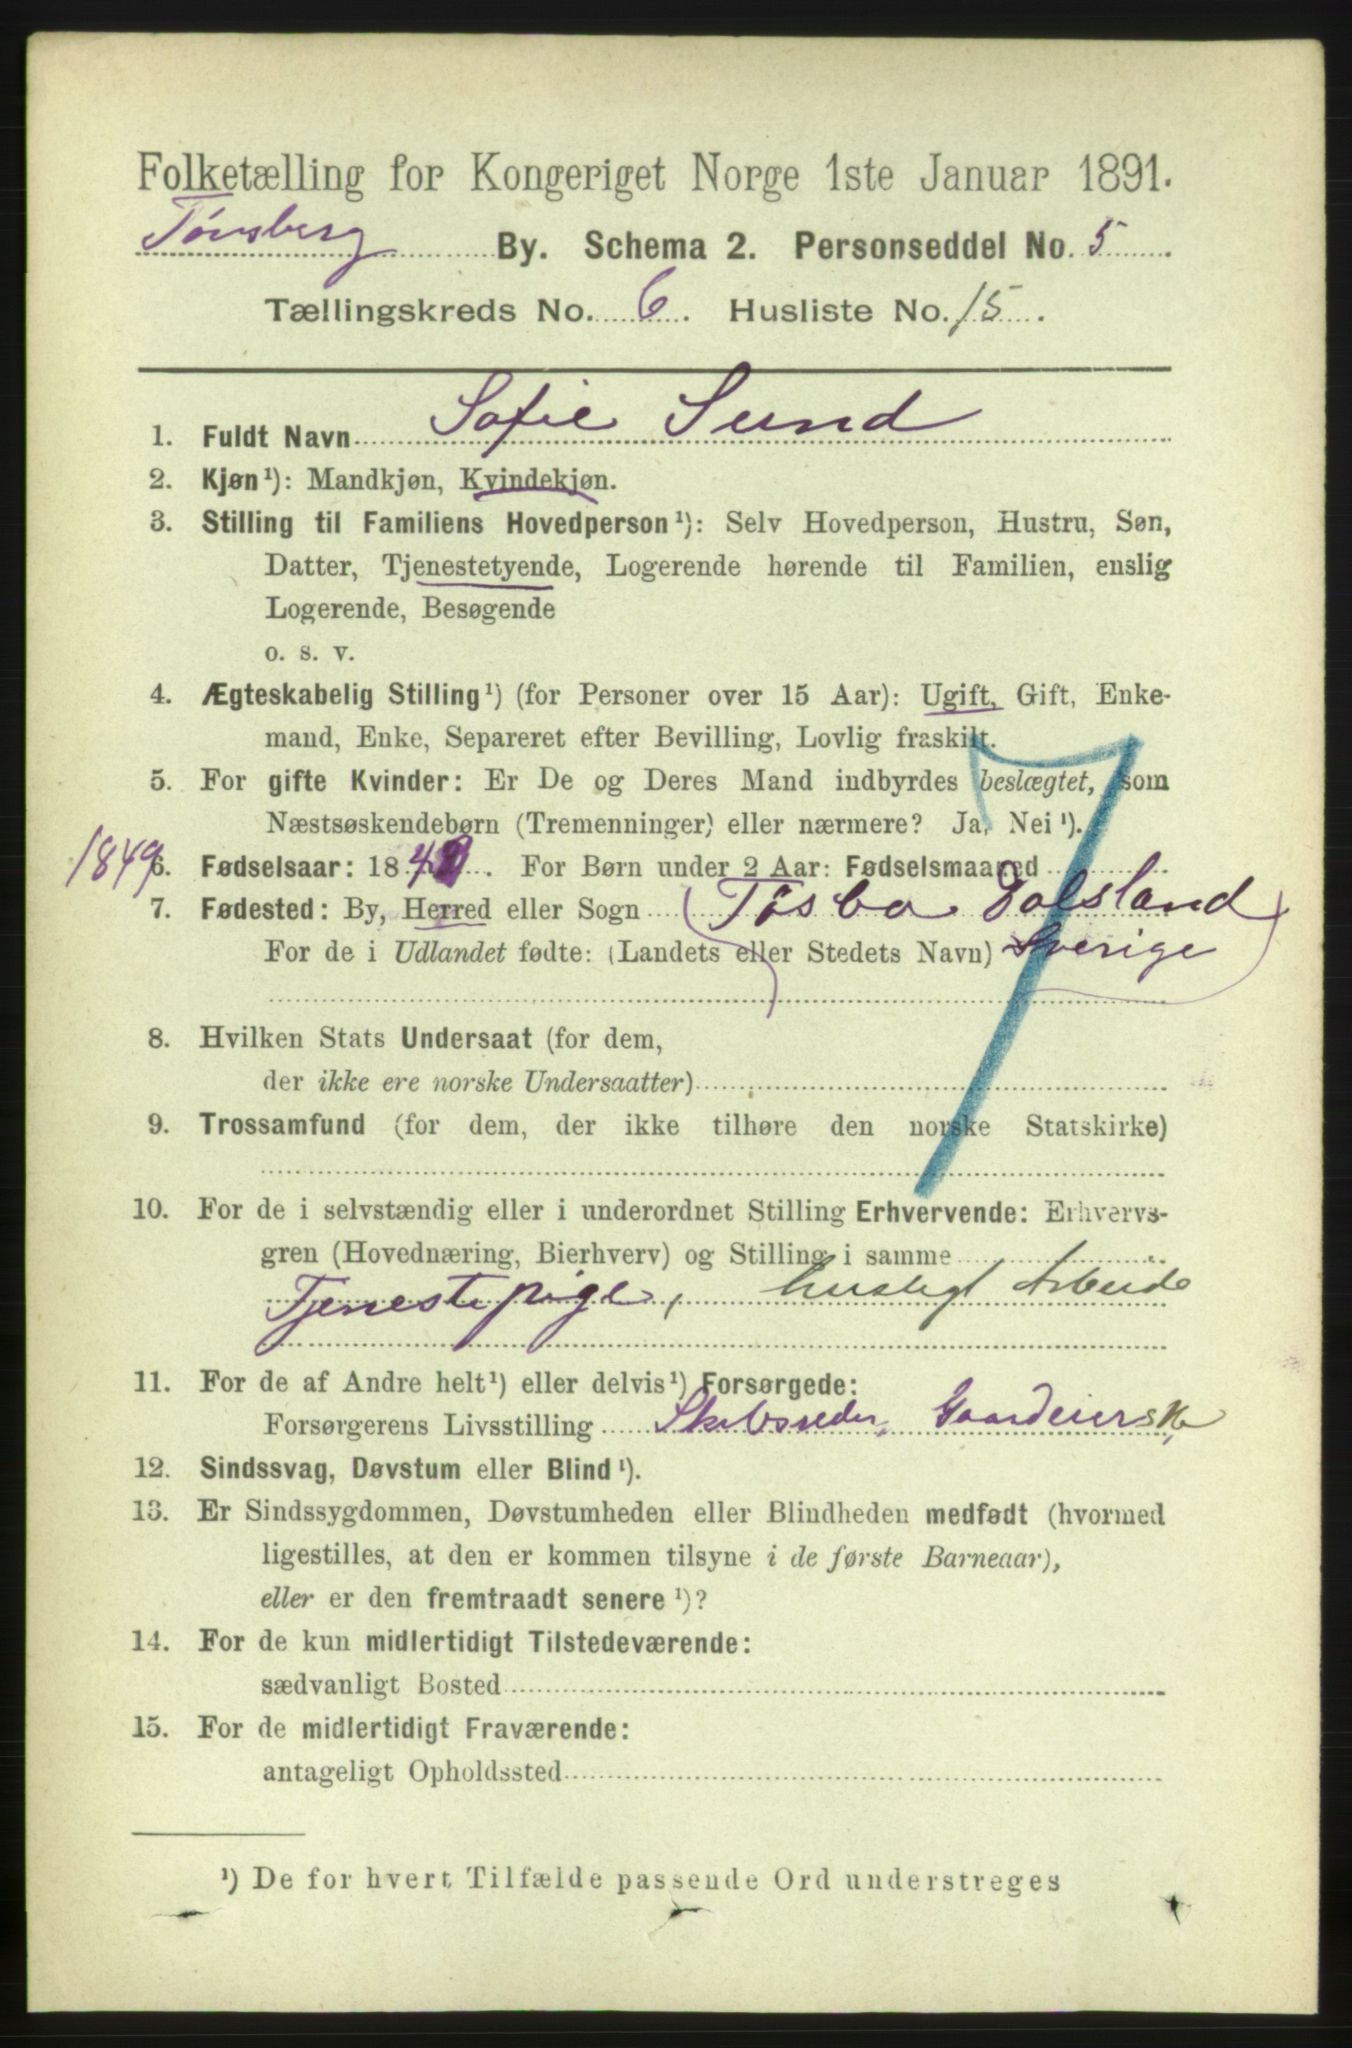 Folketælling for Kongeriget Norge 1ste Januar 1891.
Tønsberg By. Schema 2. Personseddel No. 5
Tællingskreds No. 6. Husliste No. 15.
1. Fuldt Navn Sofie Sund
2. Kjøn¹): Mandkjøn, Kvindekjøn.
3. Stilling til Familiens Hovedperson¹): Selv Hovedperson, Hustru, Søn,
Datter, Tjenestetyende, Logerende hørende til Familien, enslig
Logerende, Besøgende
o. s. v.
4. Ægteskabelig Stilling¹) (for Personer over 15 Aar): Ugift, Gift, Enke-
mand, Enke, Separeret efter Bevilling, Lovlig fraskilt.
7
5. For gifte Kvinder: Er De og Deres Mand indbyrdes beslægtet, som
Næstsøskendebørn (Tremenninger) eller nærmere? Ja, Nei¹).
1849 6. Fødselsaar: 184 . For Børn under 2 Aar: Fødselsmaaned
7. Fødested: By, Herred eller Sogn (Tøsbo Dalsland
For de i Udlandet fødte: (Landets eller Stedets Navn) Sverige)
8. Hvilken Stats Undersaat (for dem,
der ikke ere norske Undersaatter)
9. Trossamfund (for dem, der ikke tilhøre den norske Statskirke)
10. For de i selvstændig eller i underordnet Stilling Erhvervende: Erhvervs-
gren (Hovednæring, Bierhverv) og Stilling i samme
Tjenestepige, husligt Arbeide
11. For de af Andre helt¹) eller delvis¹) Forsørgede:
Forsørgerens Livsstilling Skibsreder, Gaardeierske
12. Sindssvag, Døvstum eller Blind¹).
13. Er Sindssygdommen, Døvstumheden eller Blindheden medfødt (hvormed
ligestilles, at den er kommen tilsyne i de første Barneaar),
eller er den fremtraadt senere¹)?
14. For de kun midlertidigt Tilstedeværende:
sædvanligt Bosted
15. For de midlertidigt Fraværende:
antageligt Opholdssted
¹) De for hvert Tilfælde passende Ord understreges